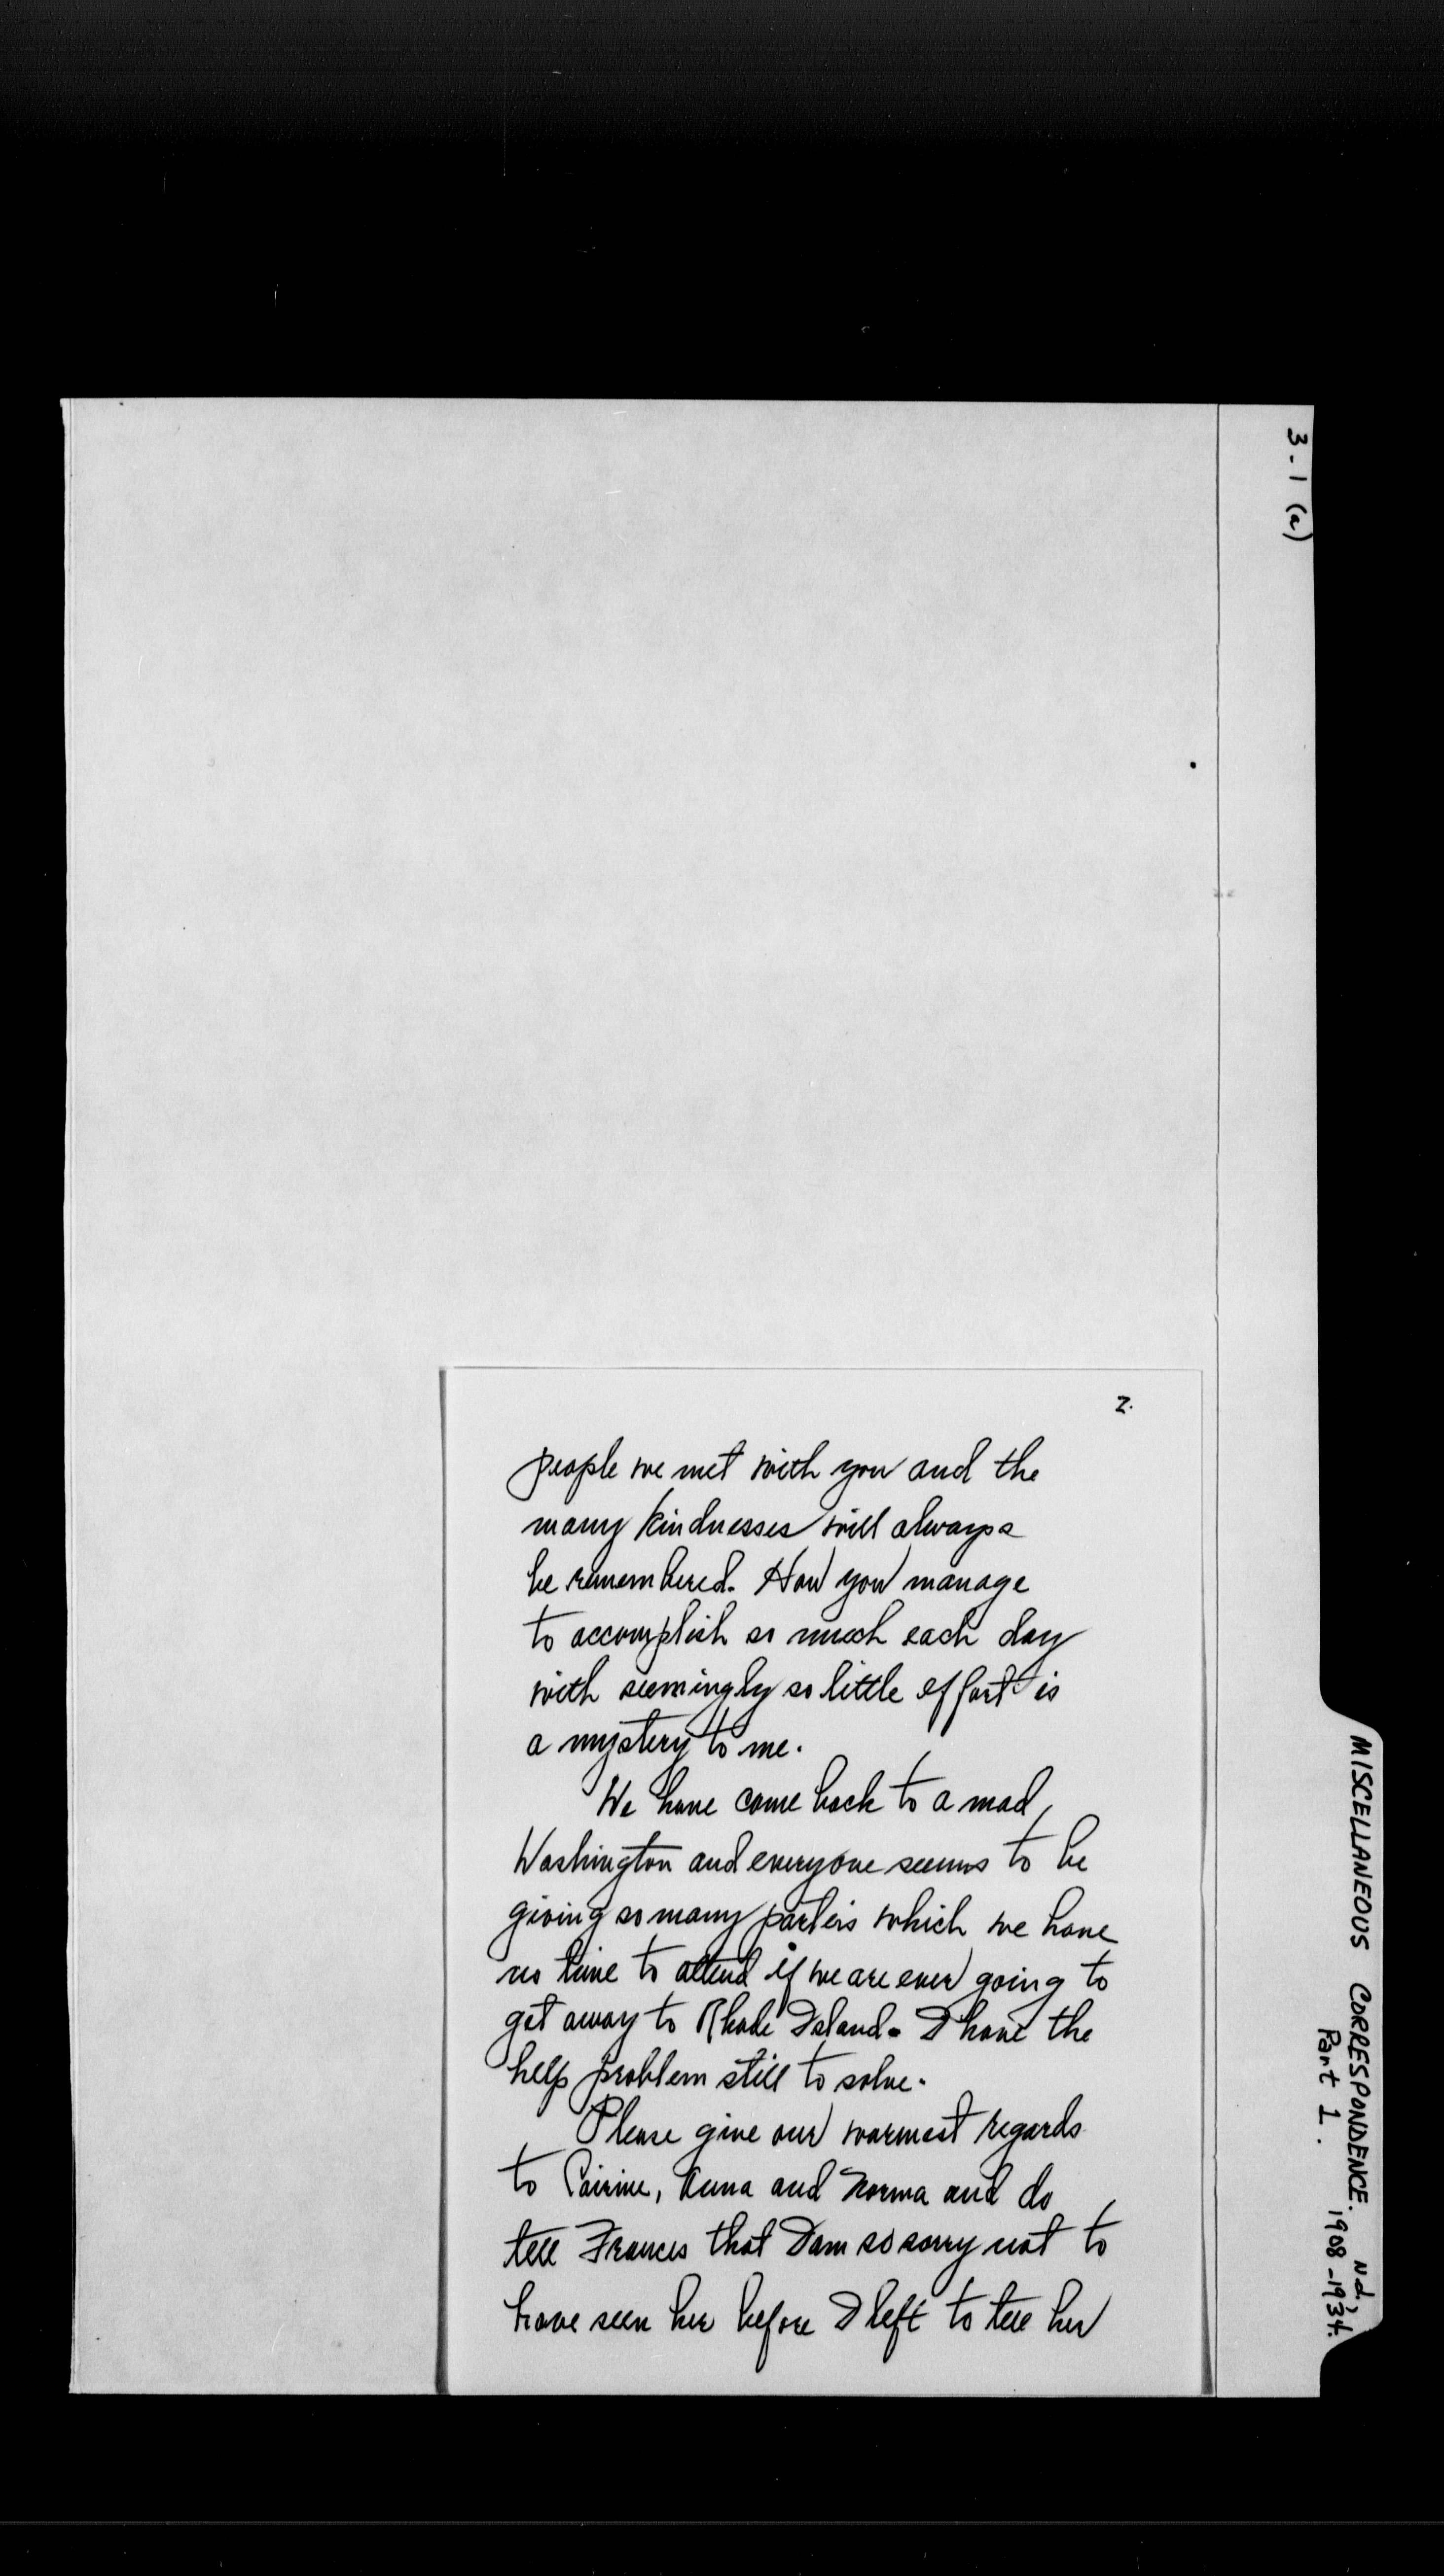 3-1 (a)
MISCELLANEOUS CORRESPONDENCE. N.d.,
Part 1. 1908-1934.
2.
people we met with you and the
many kindnesses will always
be remembered. How you manage
to accomplish so much each day
with seemingly so little effort is
a mystery to me.
We have come back to a mad
Washington and everyone seems to be
giving so many parteis which we have
no time to attend if we are ever going to
get away to Rhode Island. I have the
help problem still to solve.
Please give our warmest regards
to Cairine, Anna and Norma and do
tell Frances that I am so sorry not to
have seen her before I left to tell her